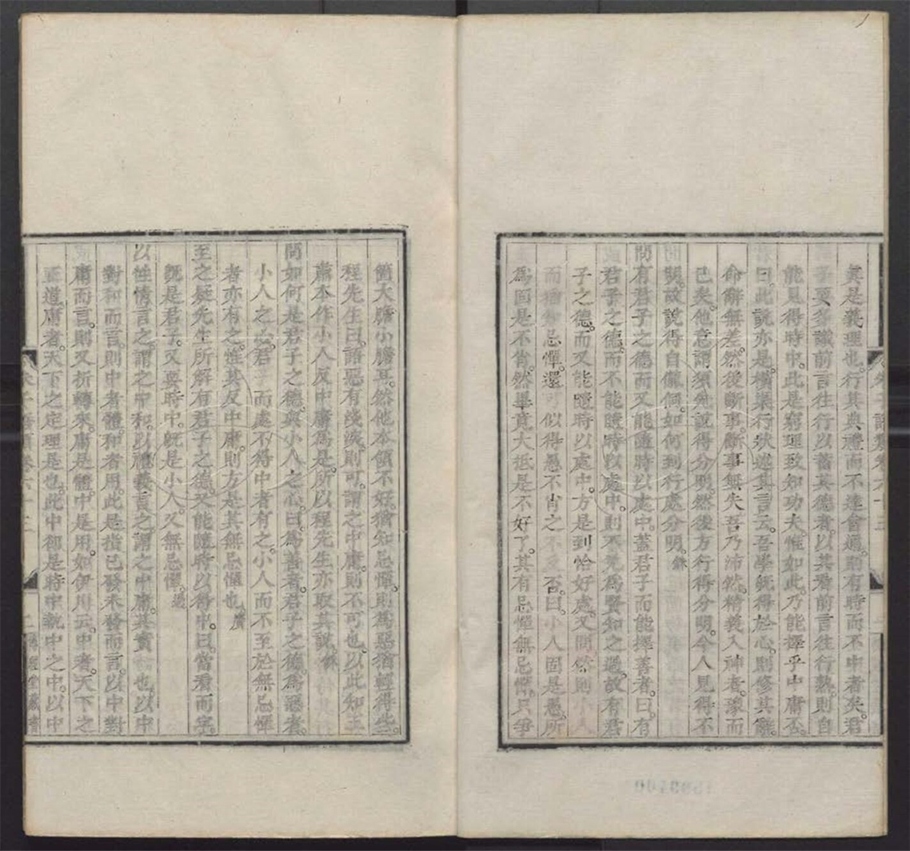 其是義理也行其典禮而不達會通則有時而不中者矣君
子要多識前言往行以蓄其德者以其看前言往行熟則自
能見得時中此是窮理致知功夫惟如此乃能擇乎中庸否
曰此說亦是橫渠行狀述其言云吾學既得於心則修其辭
命辭無差然後斷事斷事無失吾乃沛然精義入神者豫而
已矣他意謂須先說得分明然後方行得分明今人見得不
明故說得自儱侗如何到行處分明
問有君子之德而又能隨時以處中蓋君子而能擇善者曰有
君子之德而不能隨時以處中則不免為賢知之過故有君
子之德而又能隨時以處中方是到恰好處又問然則小人
而猶知忌憚還可似得愚不肖之不及否曰小人固是愚所
為固是不肖然畢竟大抵是不好了其有忌憚無忌憚只爭
箇大膽小膽耳然他本領不好猶知忌憚則為惡猶輕得些
程先生曰語惡有淺深則可謂之中庸則不可也以此知王
肅本作小人反中庸為是所以程先生亦取其說
問如何是君子之德與小人之心曰為善者君子之德為惡者
小人之心君子而處不得中者有之小人而不至於無忌憚
者亦有之惟其反中庸則方是其無忌憚也
至之疑先生所解有君子之德又能隨時以得中曰當看而字
既是君子又要時中既是小人又無忌憚
以性情言之謂之中和以禮義言之謂之中庸其實一也以中
對和而言則中者體和者用此是指已發未發而言以中對
庸而言則又折轉來庸是體中是用如伊川云中者天下之
正道庸者天下之定理是也此中卻是時中執中之中以中